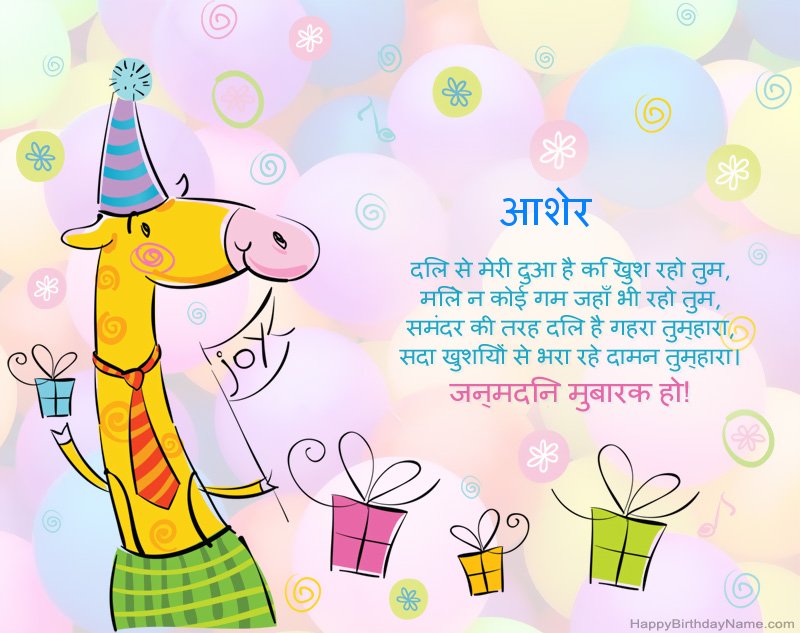 आशेर
दिल से मेरी दुआ है कि खुश रहो तुम,
मिले न कोई गम जहाँ भी रहो तुम,
समंदर की तरह दिल है गहरा तुम्हारा,
सदा खुशियों से भरा रहे दामन तुम्हारा।
जन्मदिन मुबारक हो!
joy
HappyBirthdayName.com